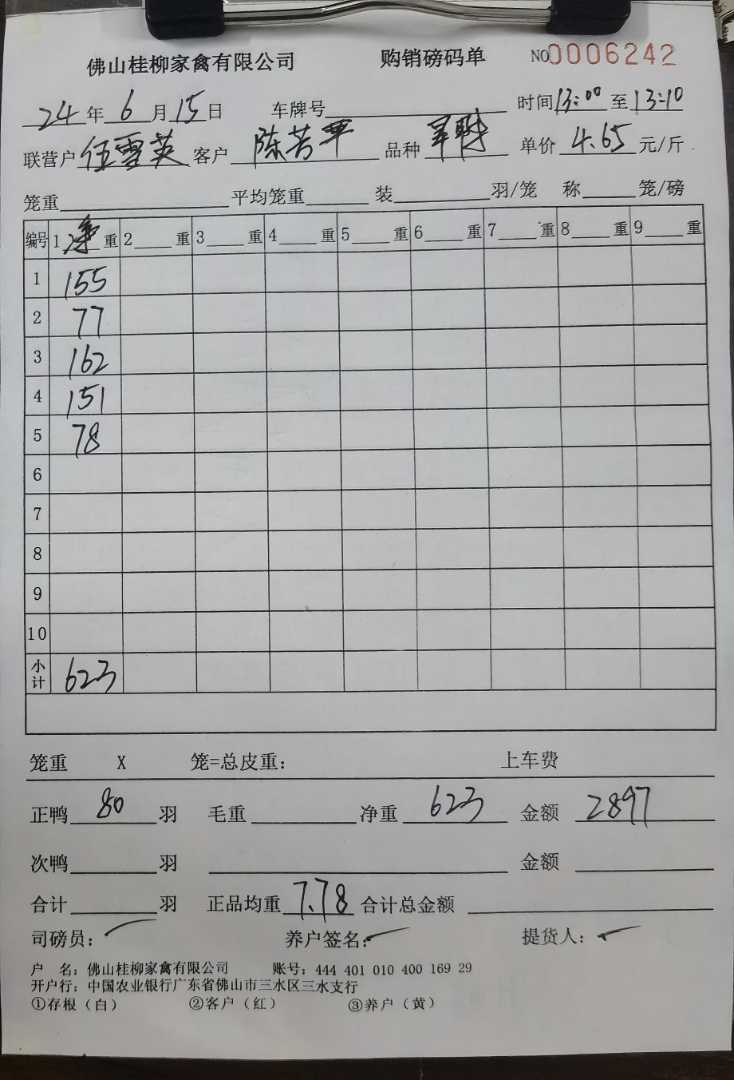 佛山桂柳家禽有限公司 购销磅码单 NO0006242
24年6月15日 车牌号 时间13:00至13:10
联营户伍雪英 客户陈芳平 品种 单价4.65元/斤
笼重 平均笼重 装 羽/笼 称 笼/磅
编号 1净重 2 重 3 重 4 重 5 重 6 重 7 重 8 重 9 重
1 155
2 77
3 162
4 151
5 78
6
7
8
9
10
小计 623
笼重 X 笼=总皮重: 上车费
正鸭80羽 毛重 净重623 金额2897
次鸭 羽 金额
合计 羽 正品均重7.78 合计总金额
司磅员: 养户签名: 提货人:
户 名: 佛山桂柳家禽有限公司 账号: 444 401 010 400 169 29
开户行: 中国农业银行广东省佛山市三水区三水支行
①存根(白) ②客户(红) ③养户(黄)